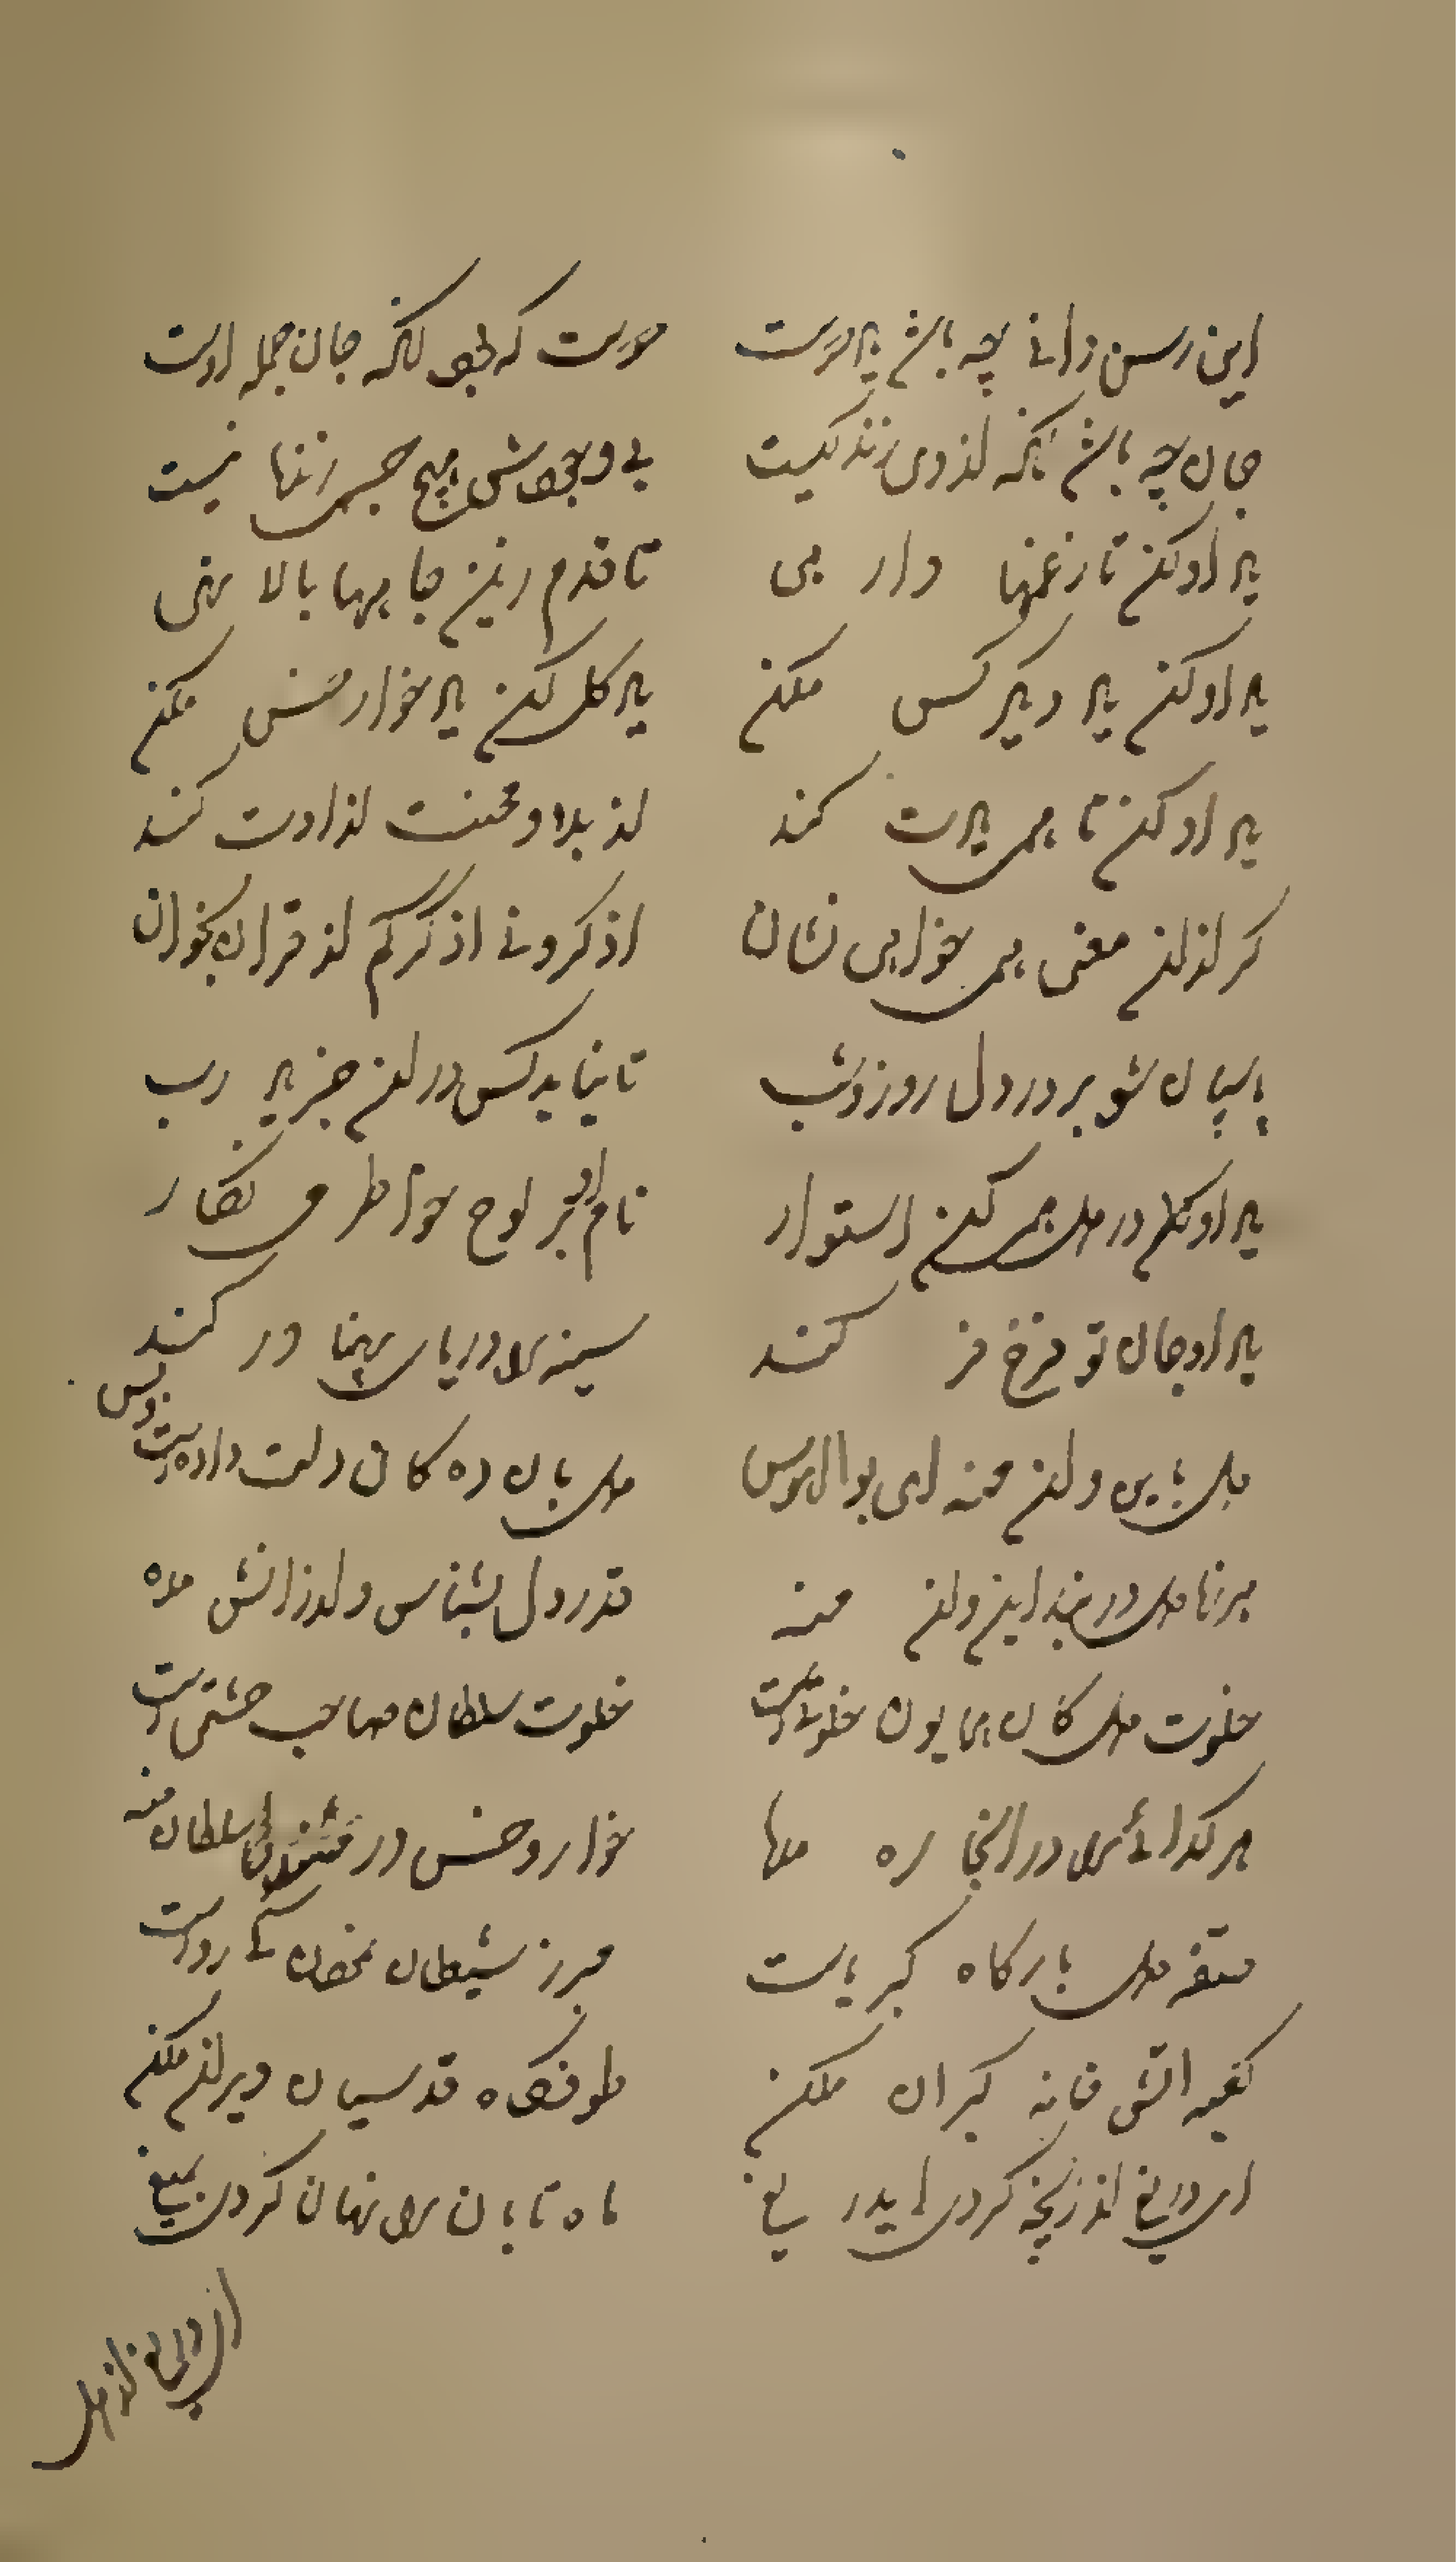 این رسن دانی چه باشد یاد دوست    دوست که بود انکه جان جمله اوست
جان چه باشد انکه از وی زندگیست    بی وجودش هیچ جسمی زنده نیست
یاد او کن تا ز غمها وارهی    تا قدم زین جایها بالا نهی
یاد او کن یاد دیگر کس مکن    یاد گل کن یاد خار و خس مکن
یاد او کن تا همی یادت کند    از بلا و محنت ازادت کند
گر از این معنی همی خواهی نشان    اذکرونی اذکرکم از قران بخوان
پاسبان شو بر در دل روز و شب    تا نیاید کس در ان جز یاد رب
یاد او در دل همی کن استوار    نام او بر لوح خاطر می نگار
یاد او جان تو فرخ فر کند    سینه را دریای پهناور کند
دل باین و ان مده ای بوالهوس    دل بان ده کان دلت دادست و بس
هرزه دل در نزد این و ان منه    قدر دل بشناس و ارزانش مده
خلوت دل کان همایون خلوتیست    خلوت سلطان صاحب حشمتیست
هر گدائی را در انجا ره مده    خار و خس در مسند سلطان منه
دل بارگاه کبریاست    هرزه شیطان کی رواست
کعبه اتش خانه گبران مکن    طوفگاه قدسیان ویران مکن
ای دریغ از رنجه کردی ای پدر    ماه تابان را نهان کردی بمیغ
ای دریغ از دل